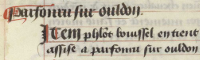 Parfourn sur ouldon.
Item phlot loussel en tient
assise a parfourn sur ouldon